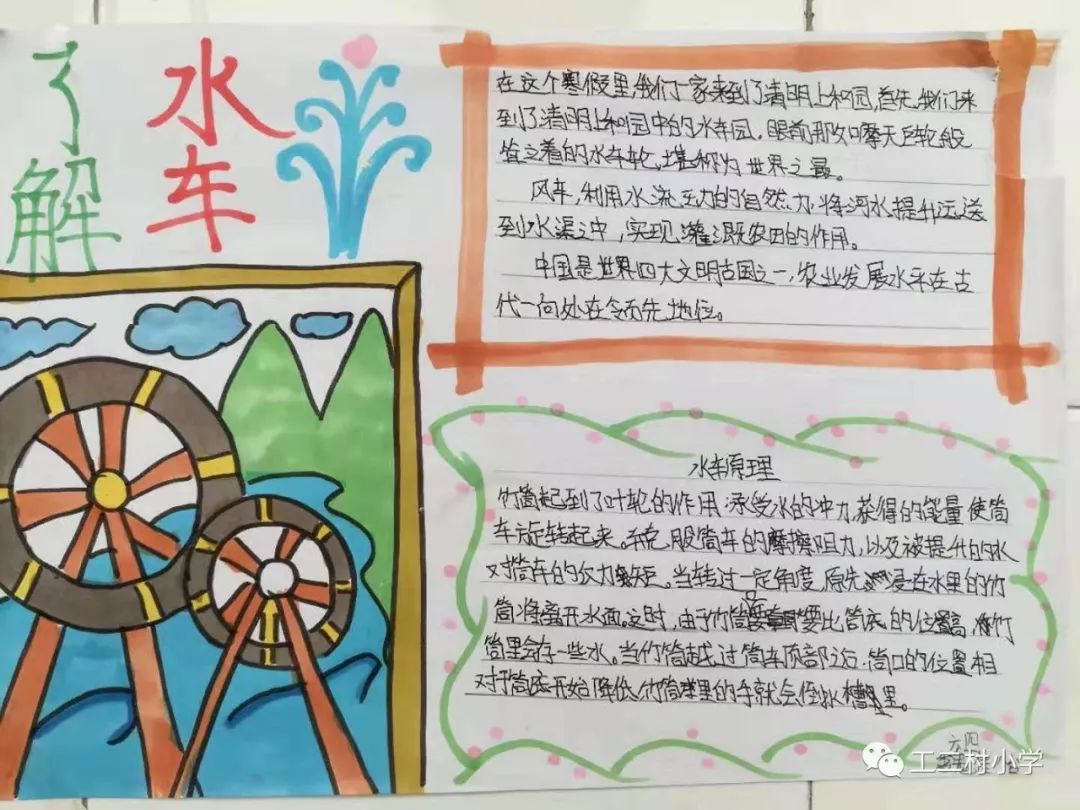 了解
水车
在这个寒假里我们一家来到了清明上和园,首先,我们来
到了清明上和园中的水车园。眼前那如摩天轮般
的水车轮,堪称为世界之最。
风车,利用水流主力的自然力将河水提升运送
到水渠之中,实现灌溉农田的作用。
中国是世界四大文明古国之一,农业发展水平在古
代一向处在领先地位。
水车原理
竹筒起到了叶轮的作用.承受水的冲力,获得的能量使筒
车旋转起来。克服筒车的摩擦阻力,以及被提升的水
对筒车的力矩。当转过一定角度,原先浸在水里的竹
筒将离开水面。这时,由于竹筒要比筒底的位置高,竹
筒里会存一些水。当竹筒越过筒车顶部之后.筒口的位置相
对于筒底开始降低,竹筒里的就会倒水槽里。
六四
工二村小学